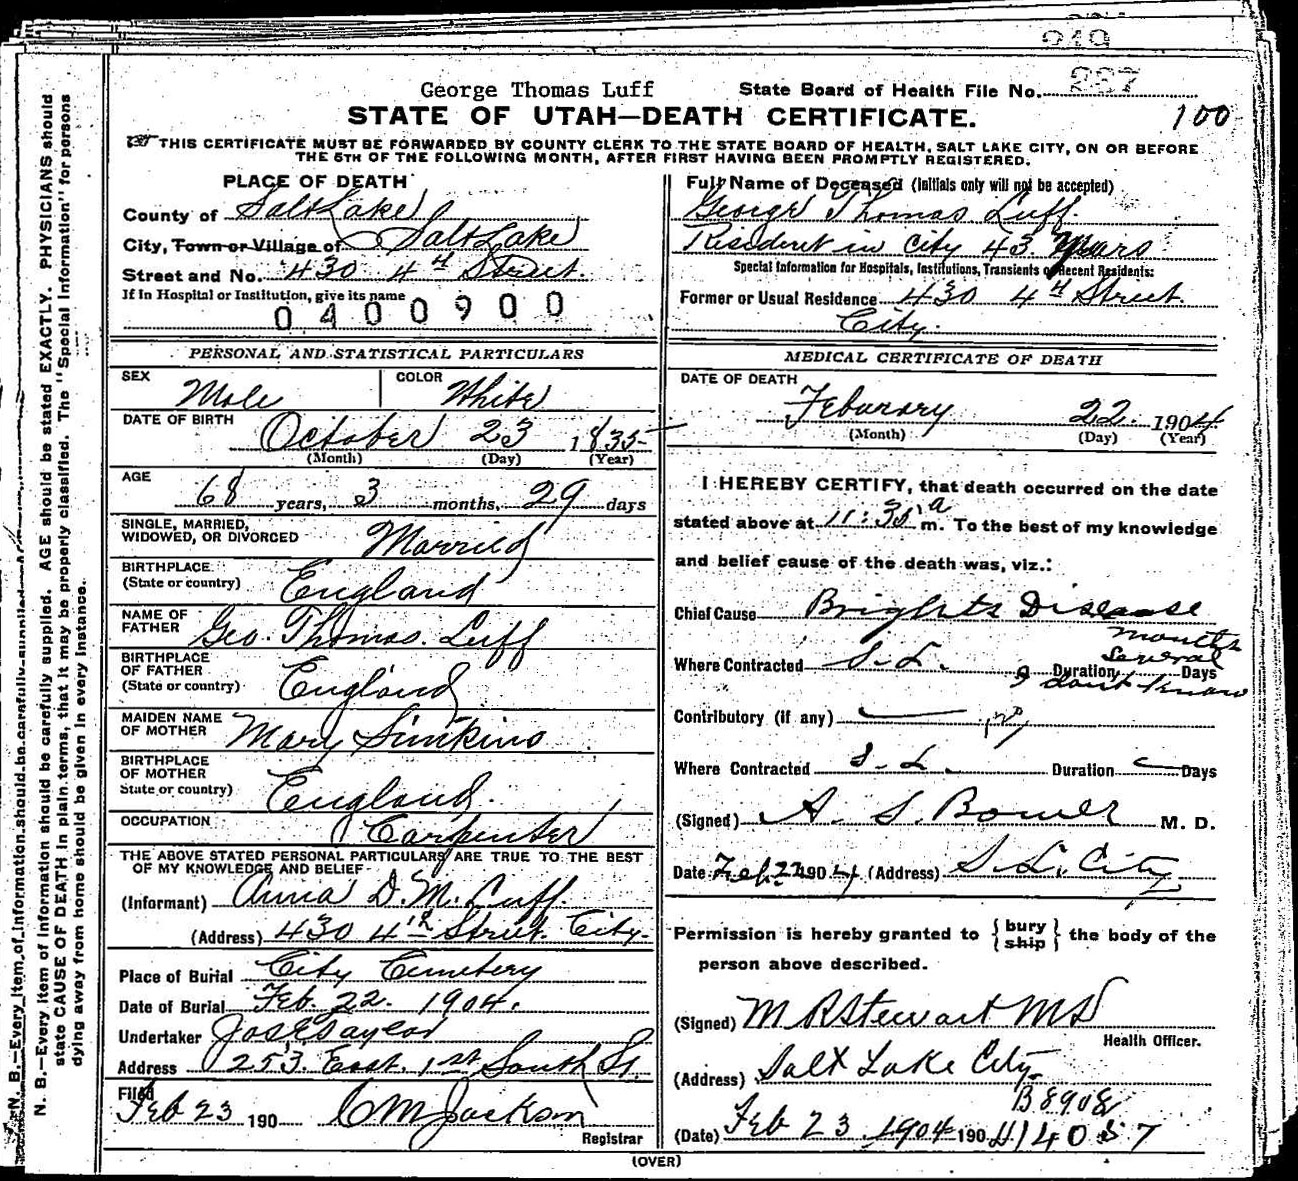 249
George Thomas Luff
State Board of Health File No. 237
STATE OF UTAH—DEATH CERTIFICATE.
100
THIS CERTIFICATE MUST BE FORWARDED BY COUNTY CLERK TO THE STATE BOARD OF HEALTH, SALT LAKE CITY, ON OR BEFORE
THE 5TH OF THE FOLLOWING MONTH, AFTER FIRST HAVING BEEN PROMPTLY REGISTERED.
PLACE OF DEATH
County of Salt Lake
City, Town or Village of Salt Lake
Street and No. 430 4th Street.
If in Hospital or Institution, give its name
0400900
Full Name of Deceased (Initials only will not be accepted)
George Thomas Luff.
Resident in City 43 Years
Special Information for Hospitals, Institutions, Transients or Recent Residents:
Former or Usual Residence 430 4th Street.
City.
PERSONAL AND STATISTICAL PARTICULARS
SEX Male COLOR White
DATE OF BIRTH October 23 1835
(Month) (Day) (Year)
AGE 68 years, 3 months, 29 days
SINGLE, MARRIED,
WIDOWED, OR DIVORCED Married
BIRTHPLACE
(State or country) England
NAME OF
FATHER Geo. Thomas. Luff
BIRTHPLACE
OF FATHER
(State or country) England
MAIDEN NAME
OF MOTHER Mary Simkins
BIRTHPLACE
OF MOTHER
State or country) England.
OCCUPATION Carpenter
THE ABOVE STATED PERSONAL PARTICULARS ARE TRUE TO THE BEST
OF MY KNOWLEDGE AND BELIEF
(Informant) Anna D. M. Luff.
(Address) 430 4th Street. City.
Place of Burial City Cemetery
Date of Burial Feb. 22. 1904.
Undertaker Jos E Taylor
Address 253. East. 1st South St.
Filed
Feb 23 190 C M Jackson
Registrar
MEDICAL CERTIFICATE OF DEATH
DATE OF DEATH
Feburary 22. 1904
(Month) (Day) (Year)
I HEREBY CERTIFY, that death occurred on the date
stated above at 11:35 a m. To the best of my knowledge
and belief cause of the death was, viz.:
Chief Cause Brights Disease
months
several
Where Contracted S. L. Duration Days
I dont know
Contributory (if any) no
Where Contracted S. L. Duration Days
(Signed) A. S. Bower M. D.
Date Feb. 22 1904 (Address) S. L. City
Permission is hereby granted to {bury ship} the body of the
person above described.
(Signed) M R Stewart MD
Health Officer.
(Address) Salt Lake City.
B 8908
(Date) Feb 23 1904 190 H14057
(OVER)
N. B.—Every item of information should be carefully supplied. AGE should be stated EXACTLY. PHYSICIANS should
state CAUSE OF DEATH in plain terms, that it may be properly classified. The "Special Information" for persons
dying away from home should be given in every instance.
N. B.—Every item of information should be carefully supplied